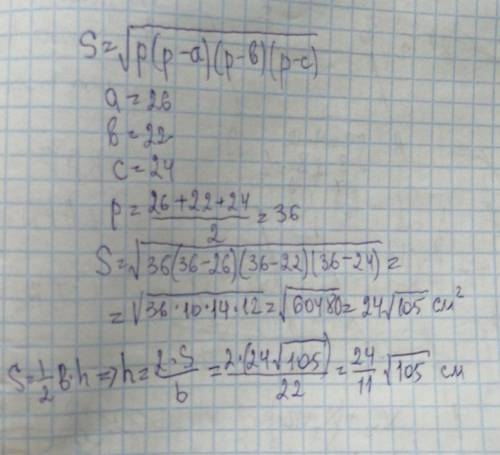 S=√p(p-a)(p-в)(p-c)
a=26
в=22
c=24
p=26+22+24/2=36
S=√36(36-26)(36-22)(36-24)=
=√36·10·14·12=√60480=24√105 см²
S=1/2 в·h⇒h=2·S/b=2·(24√105)/22=24/11·√105 см